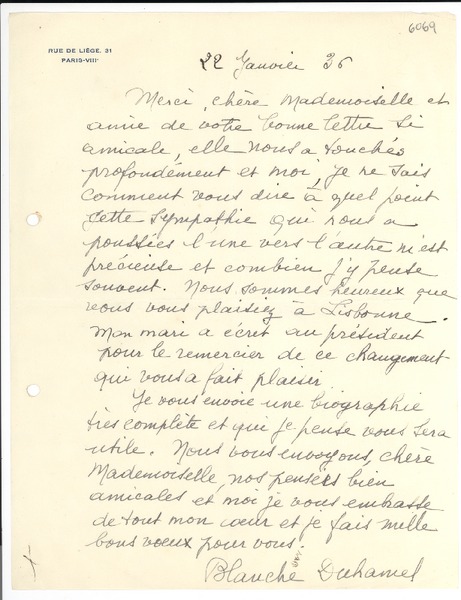 6069
RUE DE LIÈGE, 31
PARIS-VIIIᵉ
22 Janvier 36
Merci, chère Mademoiselle et
amie de votre bonne lettre si
amicale, elle nous a touchés
profondément et moi, je ne sais
comment vous dire à quel point
cette sympathie qui nous a
poussées l'une vers l'autre m'est
précieuse et combien j'y pense
souvent. Nous sommes heureux que
vous vous plaisiez à Lisbonne.
Mon mari a écrit au président
pour le remercier de ce changement
qui vous a fait plaisir.
Je vous envoie une biographie
très complète et qui je pense vous sera
utile. Nous vous envoyons, chère
Mademoiselle, nos pensers bien
amicales et moi je vous embrasse
de tout mon cœur et je fais mille
bons vœux pour vous.
Blanche Duhamel